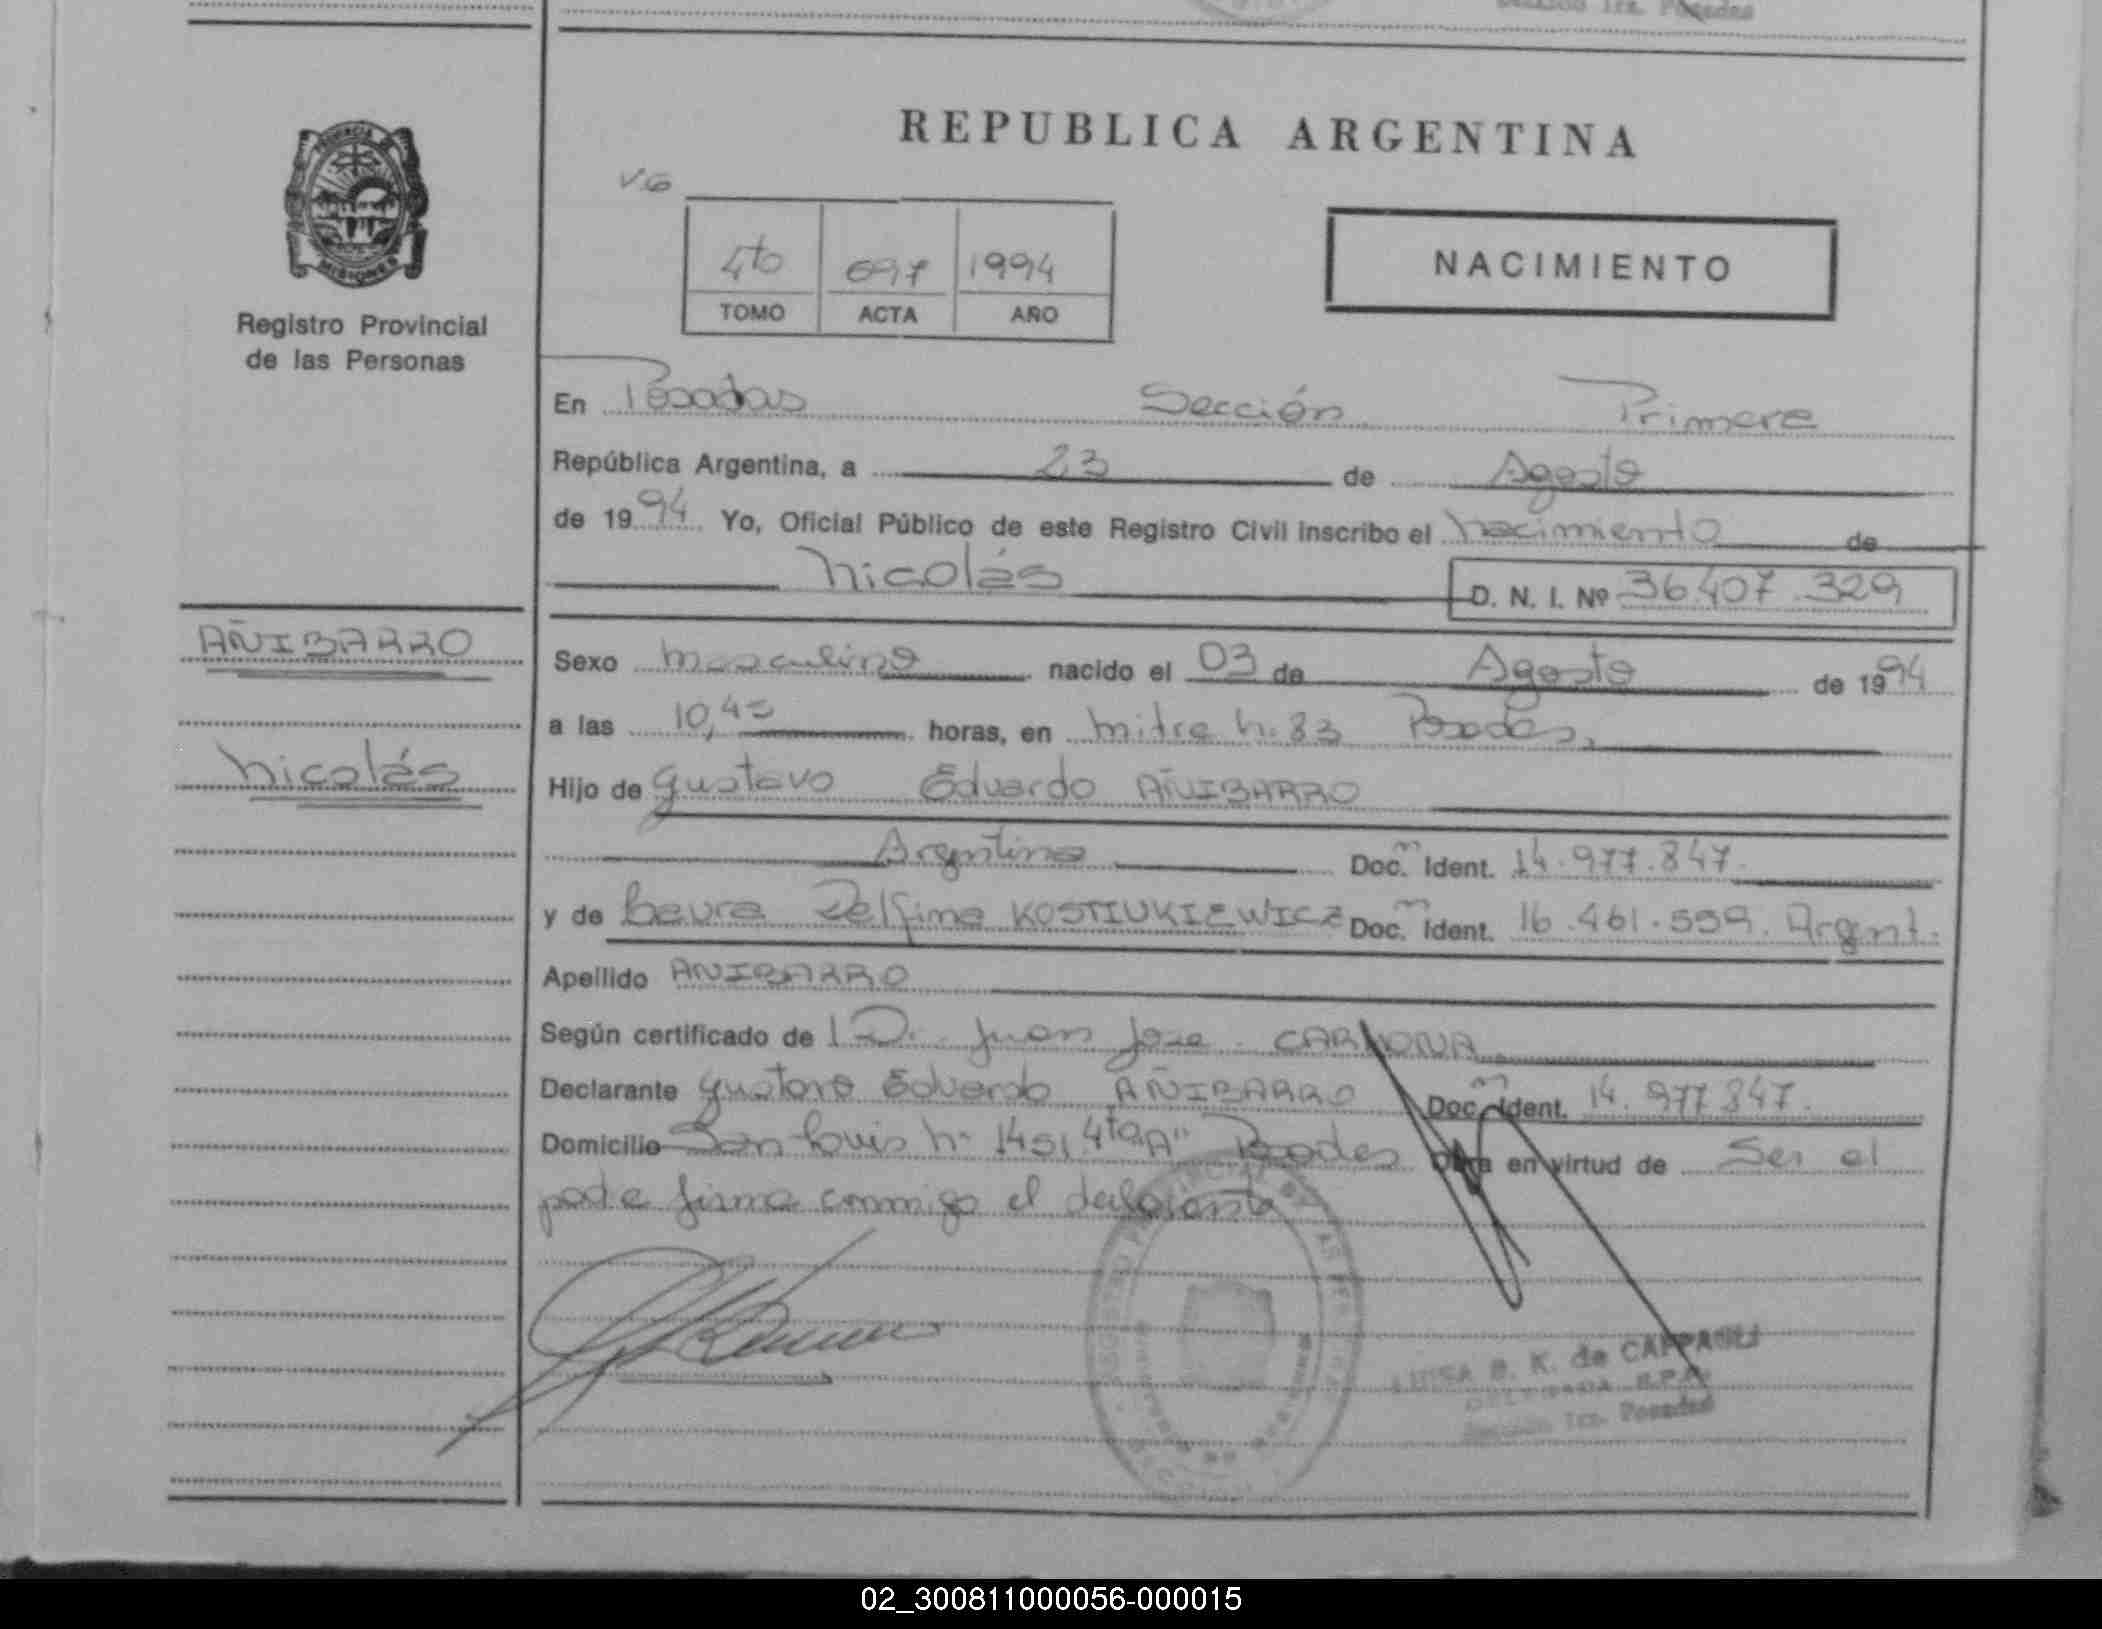 Sección 1ra. Posadas
REPUBLICA ARGENTINA
PROVINCIA
MISIONES
Registro Provincial
de las Personas
V.G
4to 697 1994
TOMO ACTA AÑO
NACIMIENTO
En Posadas Sección Primera
República Argentina, a 23 de Agosto
de 1994 Yo, Oficial Público de este Registro Civil inscribo el nacimiento de
Nicolás D. N. I. Nº 36.407.329
AÑIBARRO
Nicolás
Sexo masculino nacido el 03 de Agosto de 1994
a las 10,45 horas, en mitre n. 83 Posadas,
Hijo de Gustavo Eduardo AÑIBARRO
Argentino Doc. m Ident. 14.977.847.
y de Laura Delfina KOSTIUKIEWICZ Doc. m Ident. 16.461.559. Argent.
Apellido AÑIBARRO
Según certificado de Dr. Juan Jose CARMONA
Declarante Gustavo Eduardo AÑIBARRO Doc. m Ident. 14.977.847.
Domicilio San Luis nº 1451 4to "A" Posadas Obra en virtud de Ser el
padre firma conmigo el declarante
LUISA B. K. de CAPPAGLI
DELEGADA R.P.P.
Sección 1ra. Posadas
02_300811000056-000015